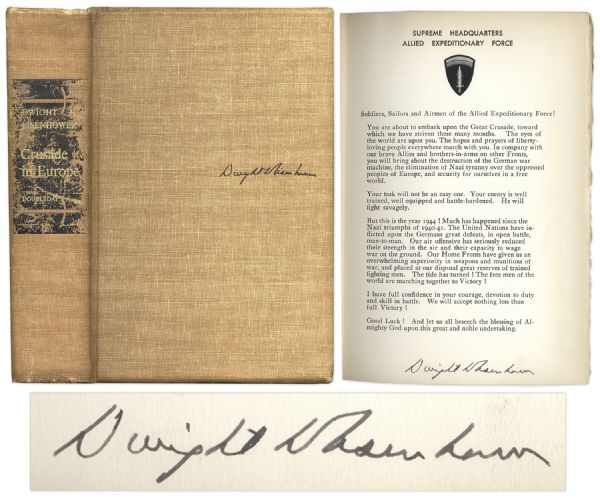 DWIGHT D.
EISENHOWER
Crusade
in Europe
DOUBLEDAY
Dwight D Eisenhower
SUPREME HEADQUARTERS
ALLIED EXPEDITIONARY FORCE
Soldiers, Sailors and Airmen of the Allied Expeditionary Force!
You are about to embark upon the Great Crusade, toward
which we have striven these many months. The eyes of
the world are upon you. The hopes and prayers of liberty-
loving people everywhere march with you. In company with
our brave Allies and brothers-in-arms on other Fronts,
you will bring about the destruction of the German war
machine, the elimination of Nazi tyranny over the oppressed
peoples of Europe, and security for ourselves in a free
world.
Your task will not be an easy one. Your enemy is well
trained, well equipped and battle-hardened. He will
fight savagely.
But this is the year 1944 ! Much has happened since the
Nazi triumphs of 1940-41. The United Nations have in-
flicted upon the Germans great defeats, in open battle,
man-to-man. Our air offensive has seriously reduced
their strength in the air and their capacity to wage
war on the ground. Our Home Fronts have given us an
overwhelming superiority in weapons and munitions of
war, and placed at our disposal great reserves of trained
fighting men. The tide has turned ! The free men of the
world are marching together to Victory !
I have full confidence in your courage, devotion to duty
and skill in battle. We will accept nothing less than
full Victory !
Good Luck ! And let us all beseech the blessing of Al-
mighty God upon this great and noble undertaking.
Dwight D Eisenhower
Dwight D Eisenhower